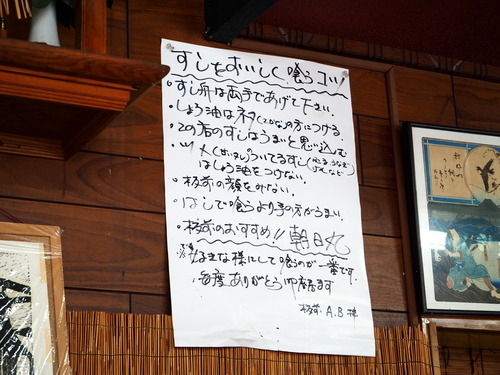 すしをおいしく喰うコツ
・すし
は両手であげて下さい.
・しょう油はネタ(さかな)の方につける.
・この店のすしはうまいと思い込む
・ツメ(甘いタレ)のついてるすし
はしょう油をつけない.
・板前の顔をみない.
・はしで喰うより手の方がうまい.
・板前のおすすめ!! 朝日丸
でも好きな様にして喰うのが一番です.
毎度ありがとう御座います
板前. A.B